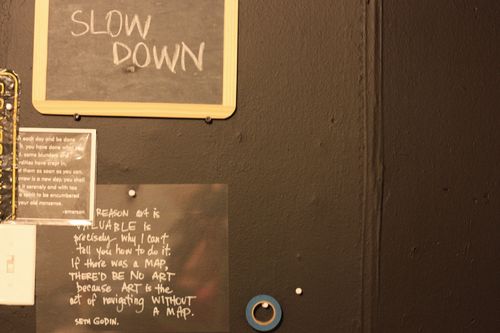 SLOW
DOWN
each day and be done
you have done what you
some blunders and
crept in,
them as soon as you can.
is a new day; you shall
it serenely and with too
a spirit to be encumbered
your old nonsense.
-emerson
REASON art is
VALUABLE is
precisely why I can't
tell you how to do it.
If there was a MAP,
THERE'D BE NO ART
because ART is the
act of navigating WITHOUT
A MAP.
SETH GODIN.